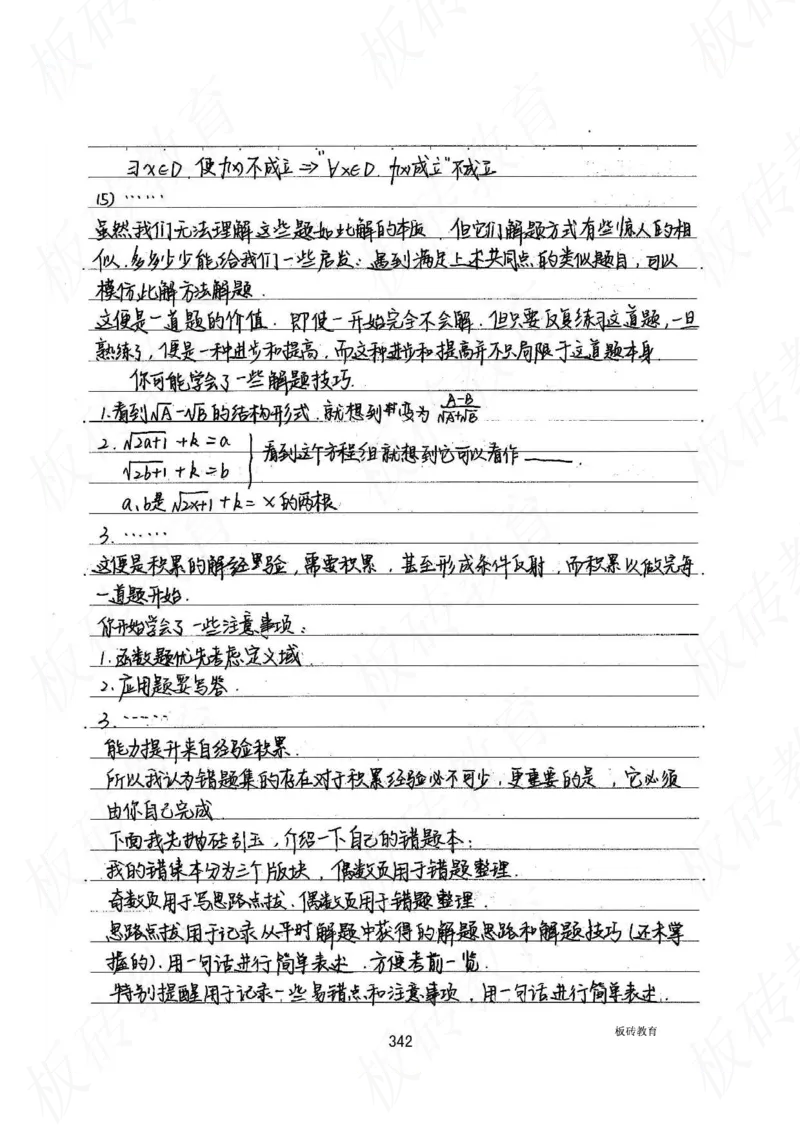 ∃x∈D,使f(x)不成立⇒"∀x∈D,f(x)成立"不成立
15)……
虽然我们无法理解这些题如此解的本质,但它们解题方式有些惊人的相
似,多多少少能给我们一些启发:遇到满足上述共同点的类似题目,可以
模仿此解方法解题.
这便是一道题的价值.即使一开始完全不会解,但只要反复练习这道题,一旦
熟练了,便是一种进步和提高,而这种进步和提高并不只局限于这道题本身.
你可能学会了一些解题技巧.
1.看到√A-√B的结构形式,就想到变为 (A-B)/(√A+√B)
2.√(2a+1)+k=a
√(2b+1)+k=b
看到这个方程组就想到它可以看作______.
a,b是√(2x+1)+k=x的两根
3.……
这便是积累的解经验,需要积累,甚至形成条件反射,而积累以做完每
一道题开始.
你开始学会了一些注意事项:
1.函数题优先考虑定义域
2.应用题要写答.
3.……
能力提升来自经验积累.
所以我认为错题集的存在对于积累经验必不可少,更重要的是,它必须
由你自己完成.
下面我先抛砖引玉,介绍一下自己的错题本:
我的错集本分为三个版块,偶数页用于错题整理.
奇数页用于写思路点拔.偶数页用于错题整理.
思路点拔用于记录从平时解题中获得的解题思路和解题技巧(还未掌
握的).用一句话进行简单表述,方便考前一览.
特别提醒用于记录一些易错点和注意事项,用一句话进行简单表述.
342
板砖教育